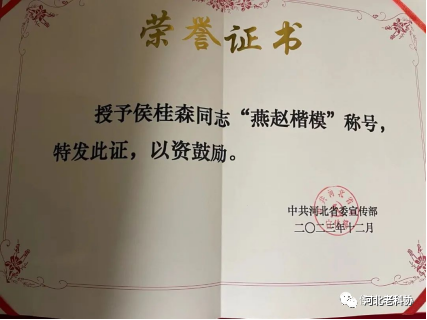 荣誉证书
授予侯桂森同志“燕赵楷模”称号，
特发此证，以资鼓励。
中共河北省委宣传部
二〇二三年十二月
河北老科协